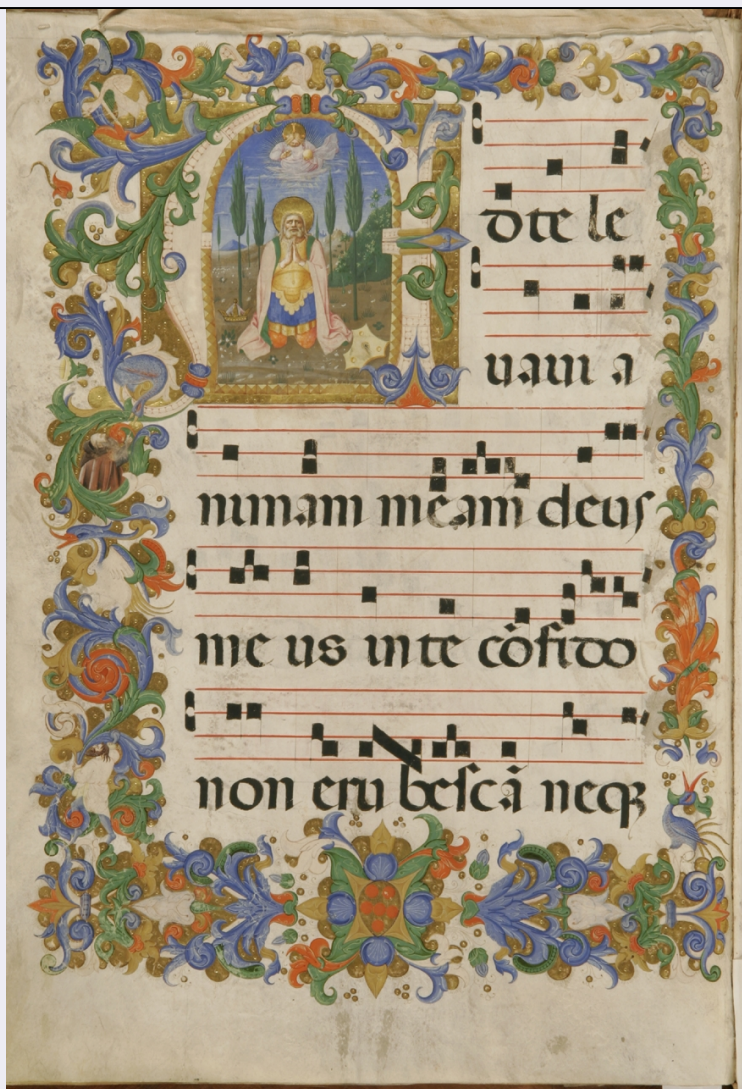 A
d te le
uaui a
nimam meam deus
me us in te cõfido
non eru bescã neqꝫ